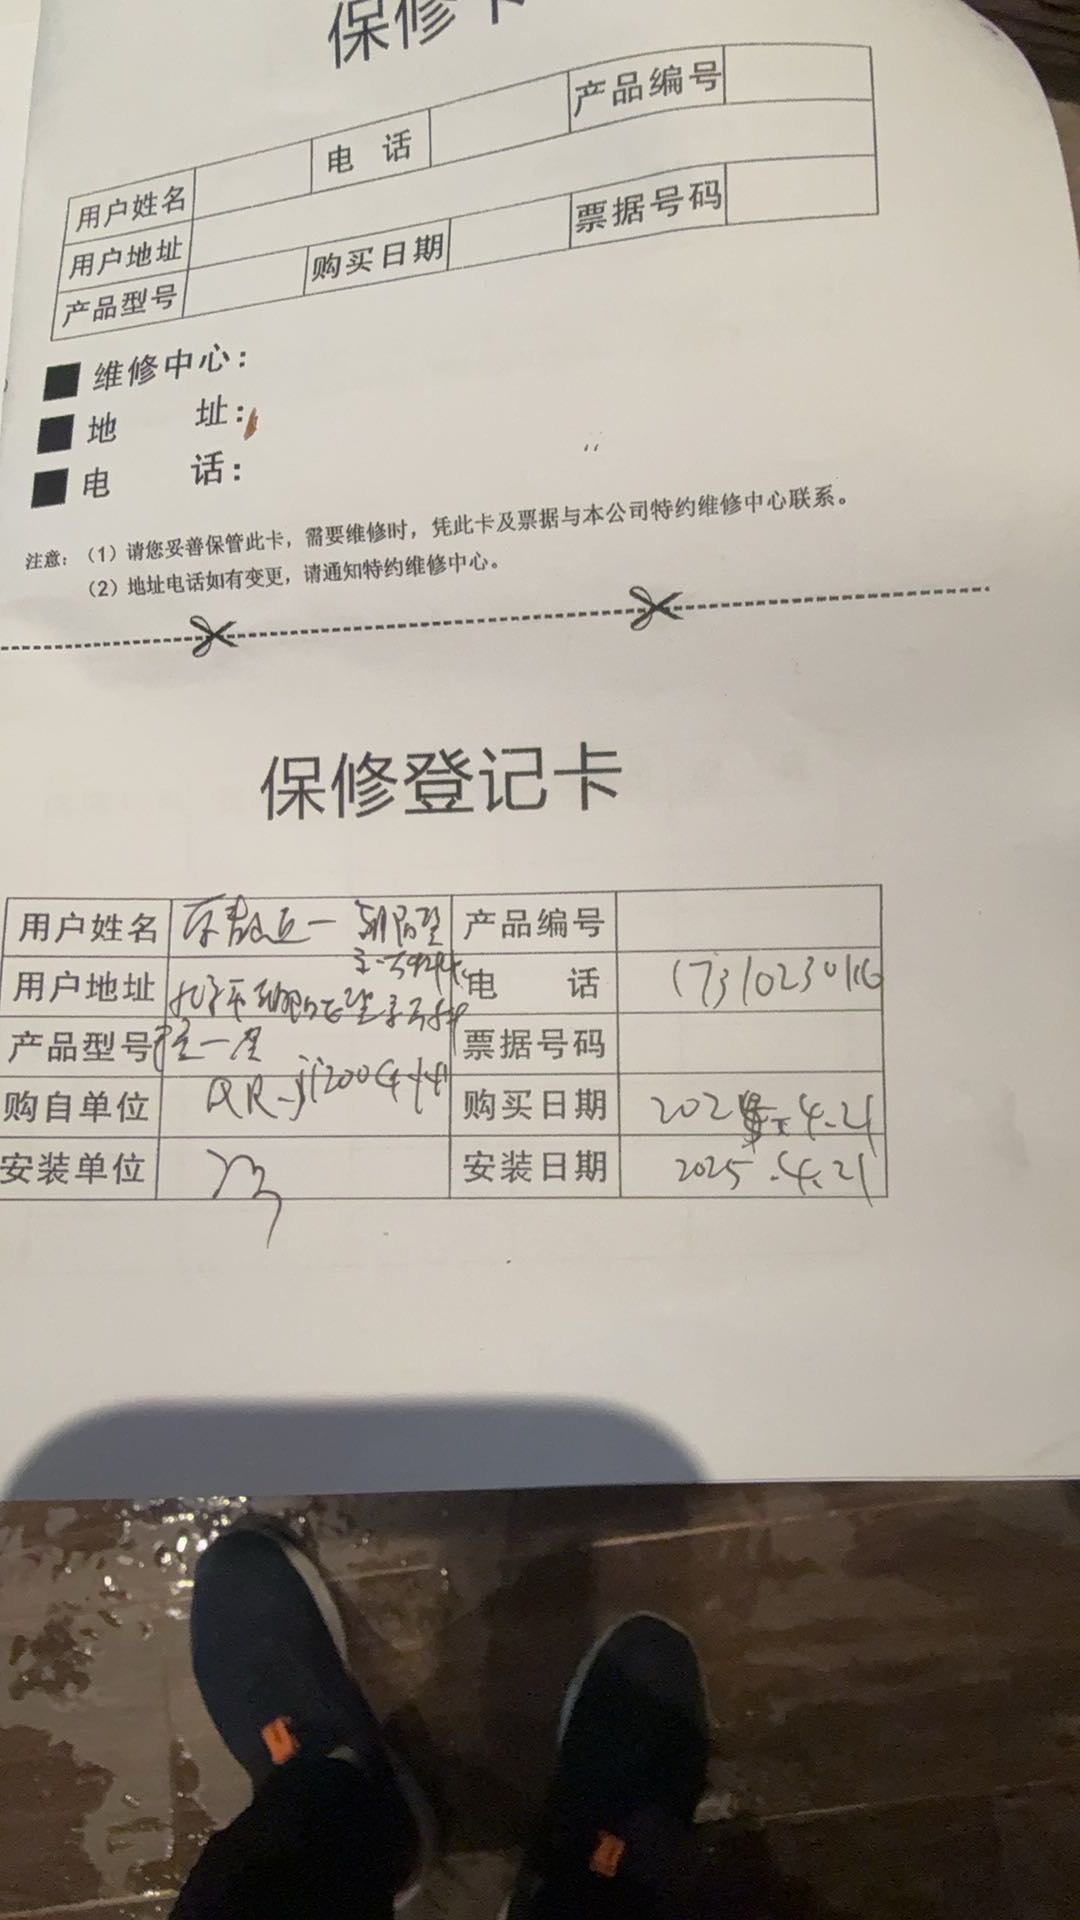 保修卡
用户姓名 电 话 产品编号
用户地址
产品型号 购买日期 票据号码
■ 维修中心：
■ 地 址：
■ 电 话：
注意：（1）请您妥善保管此卡，需要维修时，凭此卡及票据与本公司特约维修中心联系。
（2）地址电话如有变更，请通知特约维修中心。
保修登记卡
用户姓名 产品编号
用户地址 电 话
产品型号 票据号码
购自单位 购买日期 4.21
安装单位 安装日期 2025.4.21